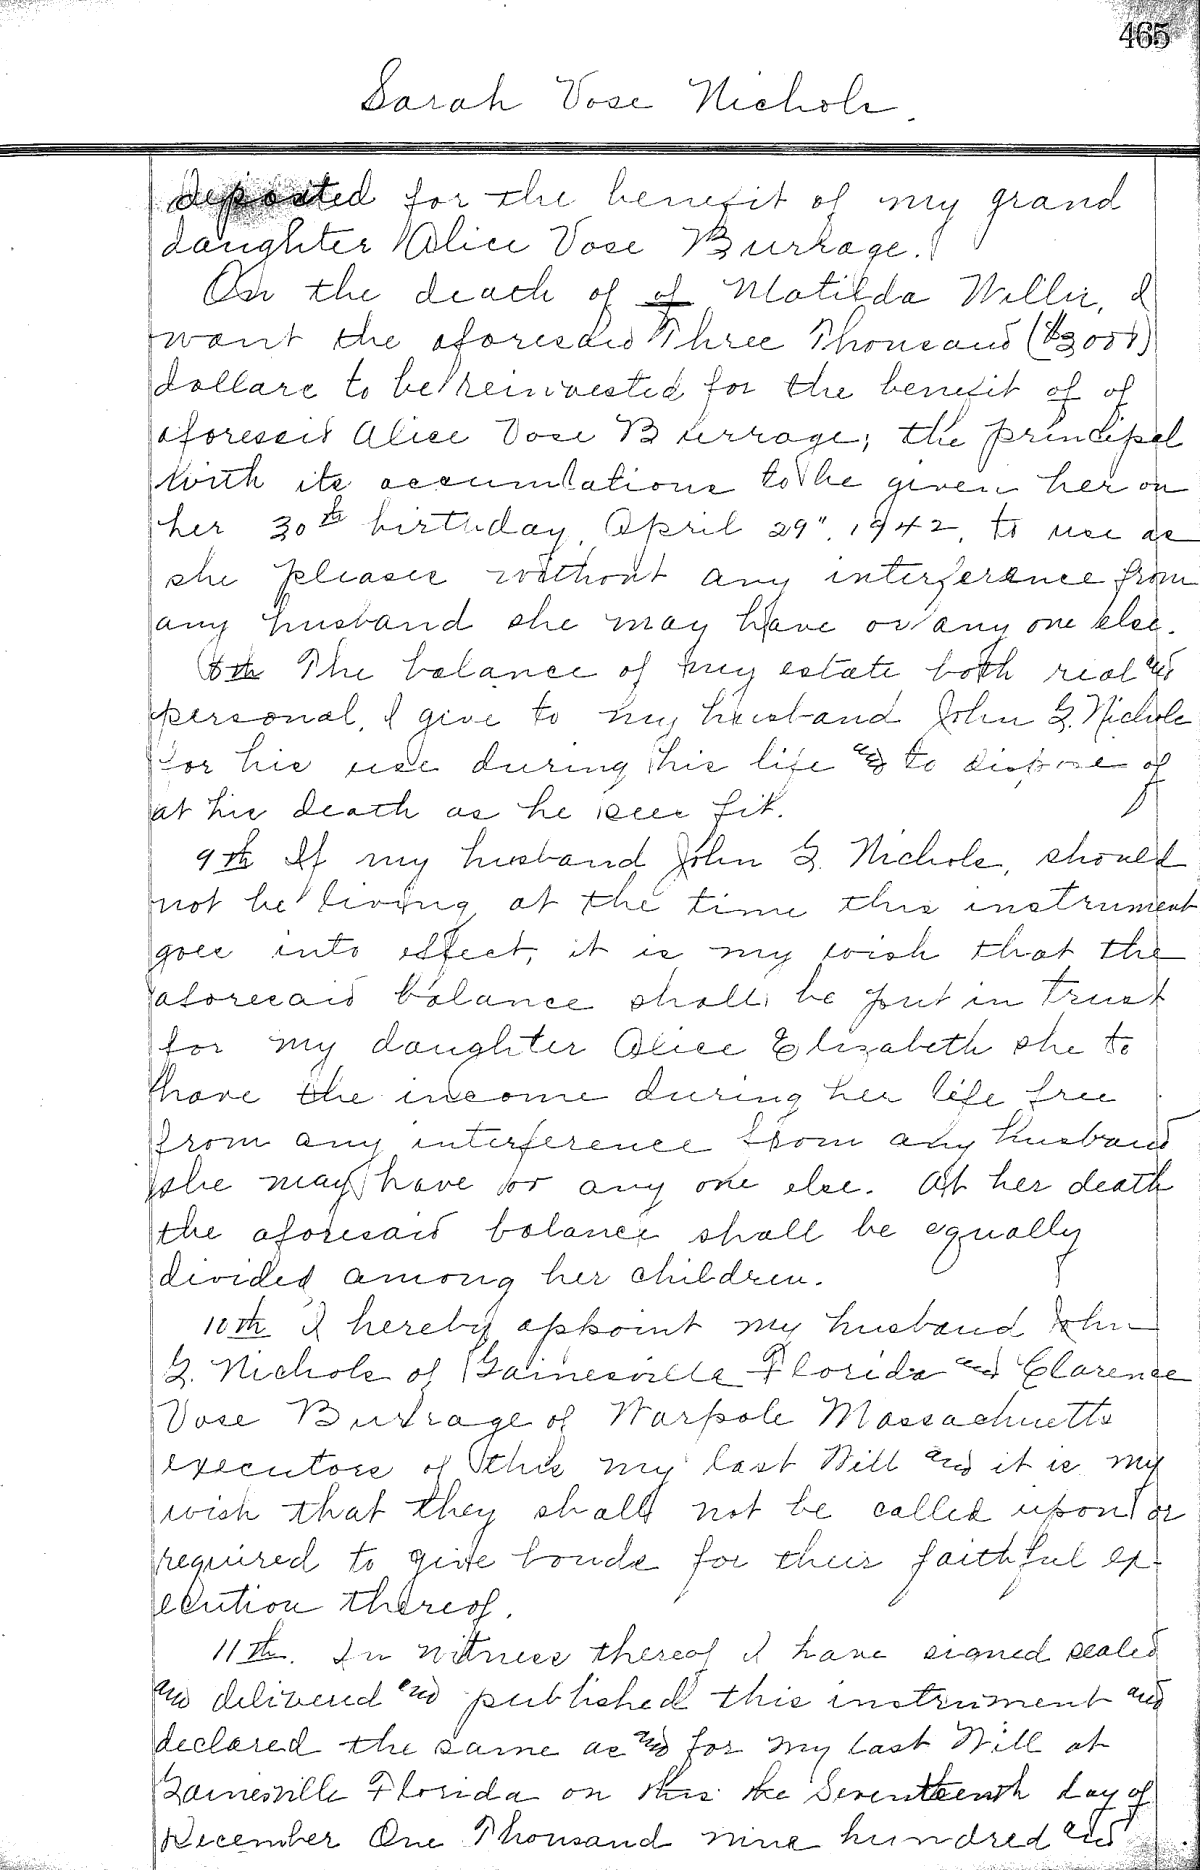 465
Sarah Vose Nichols.
deposited for the benefit of my grand
daughter Alice Vose Burrage.
On the death of of Matilda Willis, I
want the aforesaid Three Thousand ($3000)
dollars to be reinvested for the benefit of of
aforesaid Alice Vose Burrage; the principal
with its accumulations to be given her on
her 30th birthday, April 29", 1942, to use as
she pleases without any interference from
any husband she may have or any one else.
8th The balance of my estate both real and
personal, I give to my husband John G. Nichols
for his use during his life and to dispose of
at his death as he sees fit.
9th If my husband John G. Nichols, should
not be living at the time this instrument
goes into effect, it is my wish that the
aforesaid balance shall be put in trust
for my daughter Alice Elizabeth she to
have the income during her life free
from any interference from any husband
she may have or any one else. At her death
the aforesaid balance shall be equally
divided among her children.
10th I hereby appoint my husband John
G. Nichols of Gainesville Florida and Clarence
Vose Burrage of Warpole Massachuetts
executors of this my last Will and it is my
wish that they shall not be called upon or
required to give bonds for their faithful ex-
ecution thereof.
11th. In witness thereof I have signed sealed
and delivered and published this instrument and
declared the same as and for my last Will at
Gainesville Florida on this the Seventeenth day of
December One Thousand nine hundred and